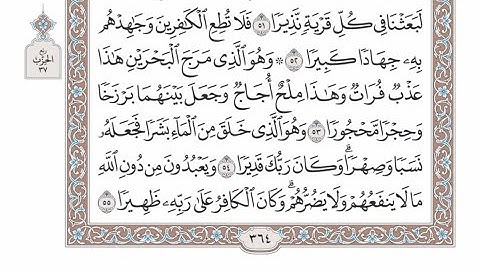 لَبَعَثْنَا فِى كُلِّ قَرْيَةٍ نَّذِيرًا ٥١ فَلَا تُطِعِ ٱلْكَٰفِرِينَ وَجَٰهِدْهُم
ربع
الحزب
٣٧
بِهِۦ جِهَادًا كَبِيرًا ٥٢ ۞ وَهُوَ ٱلَّذِى مَرَجَ ٱلْبَحْرَيْنِ هَٰذَا
عَذْبٌ فُرَاتٌ وَهَٰذَا مِلْحٌ أُجَاجٌ وَجَعَلَ بَيْنَهُمَا بَرْزَخًا
وَحِجْرًا مَّحْجُورًا ٥٣ وَهُوَ ٱلَّذِى خَلَقَ مِنَ ٱلْمَآءِ بَشَرًا فَجَعَلَهُۥ
نَسَبًا وَصِهْرًا ۗ وَكَانَ رَبُّكَ قَدِيرًا ٥٤ وَيَعْبُدُونَ مِن دُونِ ٱللَّهِ
مَا لَا يَنفَعُهُمْ وَلَا يَضُرُّهُمْ ۗ وَكَانَ ٱلْكَافِرُ عَلَىٰ رَبِّهِۦ ظَهِيرًا ٥٥
٣٦٤